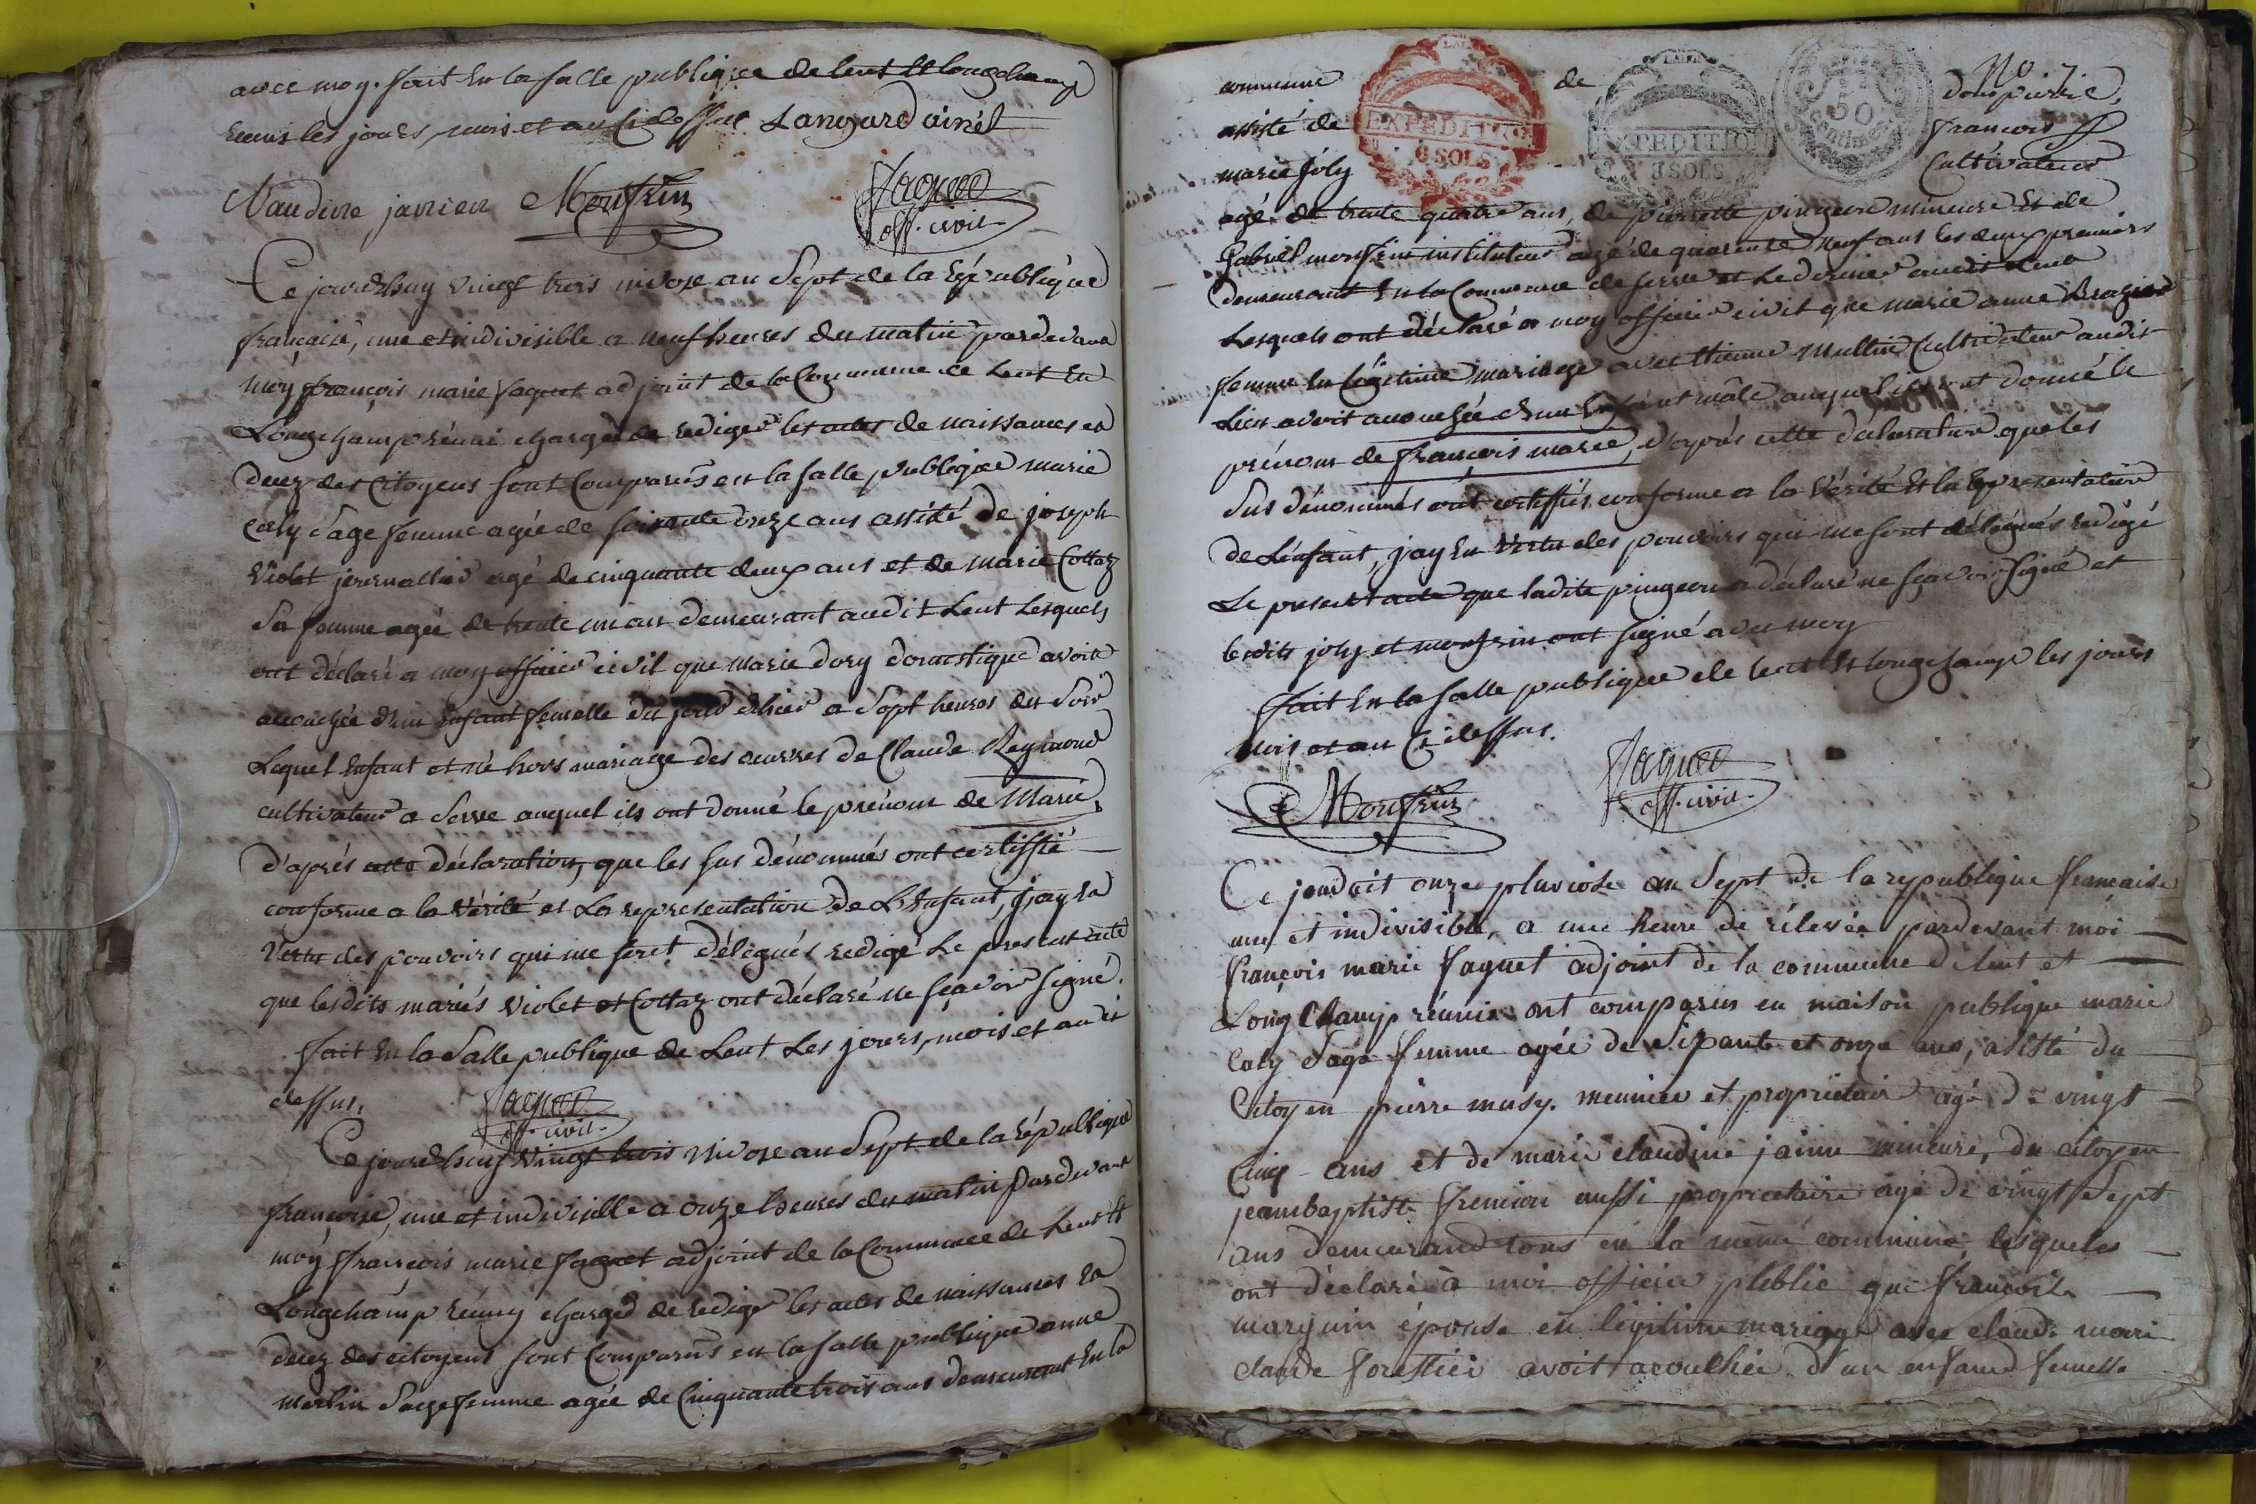 avec moy. fait En la salle publique de lent Et longchamp
reunis les jours, mois et an Ci dessus Langard ainét
Vaudine janrien Monfrin Faguet
off. civil
Ce jourdhuy vingt trois nivose an Sept de la République
française, une et indivisible a neuf heures du matin pardevant
moy françois marie faguet adjoint de la Commune de Lent Et
Longchamp réuni chargé de rediger les actes de naissances et
decez des Citoyens sont Comparus en la salle publique marie
Caty sage femme agée de soixante onze ans assisté de joseph
Violet journallier agé de cinquante deux ans et de marie Cottaz
Sa femme agée de trente un an demeurant audit Lent Lesquels
ont déclaré a moy officier civil que marie dory domestique avoit
accouchée d'un Enfant femelle du jour d'hier a Sept heures du Soir
Lequel Enfant et né hors mariage des œuvres de Claude Reymond
cultivateur a Serve auquel ils ont donné le prénom de Marie,
d'aprés cette déclaration, que les sus dénommés ont certiffié
conforme a la Vérité et La representation de L'Enfant, j'ay En
Vertu des pouvoirs qui me sont délegués redigé Le present acte
que lesdits mariés Violet et Cottaz ont déclaré ne sçavoir signé.
fait En la Salle publique de Lent Les jours, mois et an di
dessus. Faguet
off. civil
Ce jourdhuy Vingt trois Nivose an Sept de la République
françoise, une et indivisible a onze heures du matin Pardevant
moy françois marie faguet adjoint de la Commune de Lent Et
Longchamp réuny chargé de rediger les actes de naissances Et
decez des citoyens sont Comparus en la salle publique anne
merlin Sage femme agée de Cinquante trois ans demeurant En la
No 7
commune de dompierre,
assisté de françois
marie joly Cultivateur
EXPEDITION
6 SOLS
EXPEDITION
3 SOLS
50
centimes
agé de trente quatre ans, de pierrette pingeon mineure Et de
Gabriel monfrin instituteur agé de quarente neuf ans les deux premiers
demeurant En la Commune de serve et Le dernier audit Lent
Lesquels ont déclaré a moy officier civil que marie anne Brazier
femme En légitime mariage avec Etienne Mullin Cultivateur audit
Lieu avoit accouchée d'un Enfant mâle auquel ils ont donné le
prénom de françois marie, d'aprés cette déclaration que les
Sus dénommés ont certiffiés conforme a la Vérité Et la Representation
de L'enfant, j'ay En Vertu des pouvoirs qui me sont délegués redigé
Le present acte que ladite pingeon a déclaré ne sçavoir signé et
lesdits joly et monfrin ont signé avec moy
fait En la Salle publique de lent Et longchamp les jours
mois et an Ci dessus.
Monfrin Faguet
off. civil.
Ce jourduit onze pluviose an Sept de la republique francaise
une et indivisible, a une heure de rélevée pardevant moi
François marie faguet adjoint de la commune de lent et
Long Champ réunie ont comparus en maison publique marie
Caty Sage femme agée de Sépante et onze ans, assisté du
Citoyen pierre musy. meunier et proprietaire agé de vingt
Cinq ans et de marie claudine jaime mineure, du citoyen
jeanbaptiste fremion aussi proprietaire agé de vingt Sept
ans demeurand tous en la même commune, lesqueles
ont déclaré à moi officier publie que francoise
marguin épouse en légitime mariage avec claude mari
claude forestier avoit acouchée d'un enfand femelle